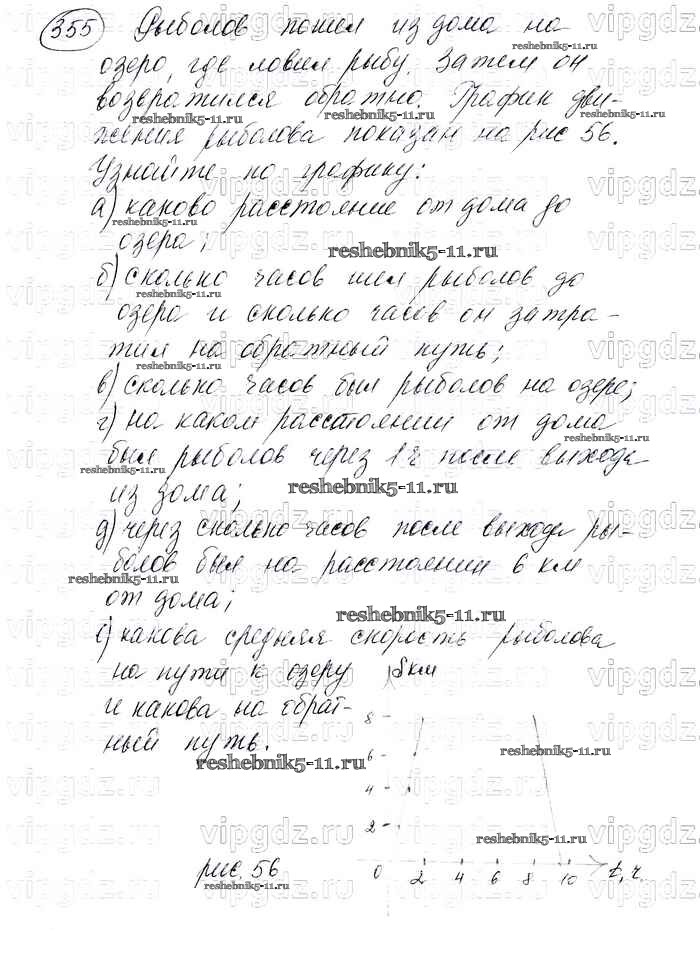 355 Рыболов пошел из дома на
озеро, где ловил рыбу. Затем он
возвратился обратно. График дви-
жения рыболова показан на рис 56.
Узнайте по графику:
а) каково расстояние от дома до
озера;
б) сколько часов шел рыболов до
озера и сколько часов он затра-
тил на обратный путь;
в) сколько часов был рыболов на озере;
г) на каком расстоянии от дома
был рыболов через 1 ч после выхода
из дома;
д) через сколько часов после выхода ры-
болов был на расстоянии 6 км
от дома;
е) какова средняя скорость рыболова
на пути к озеру
и какова на обрат-
ный путь.
S км
8
6
4
2
0 2 4 6 8 10 t, ч.
рис. 56
reshebnik5-11.ru
vipgdz.ru